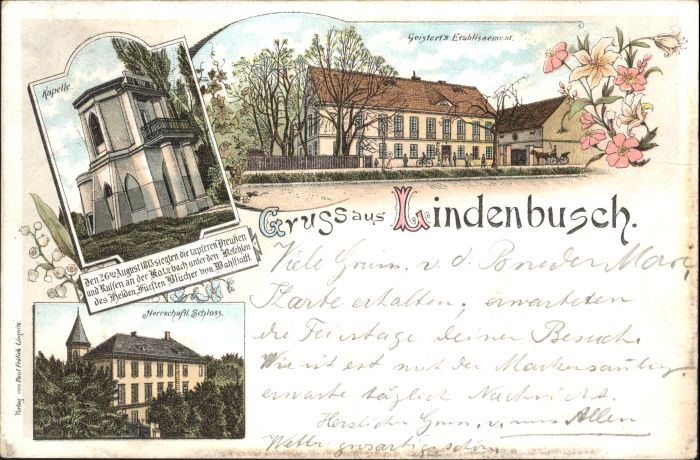 Geistert's Etablissement.
Kapelle.
Gruss aus Lindenbusch.
Den 26ten August 1813 siegten die tapferen Preußen
und Russen an der Katzbach unter den Befehlen
des Helden, Fürsten Blücher von Wahlstatt.
Herrschaftl. Schloss.
Verlag von Paul Liegnitz
Viele v. d. Bruder
Karte erhalten, erwarteten
die Feiertage deiner Besuch.
Wie ist es mit der
erwarte täglich Nachricht.
Herzlichen Gruss v. uns Allen